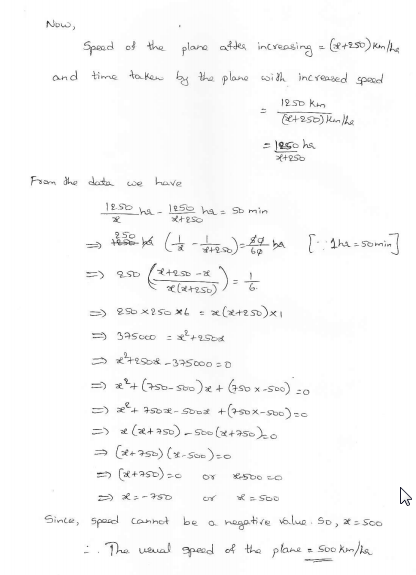 Now,
Speed of the plane after increasing = (x+250) km/hr
and time taken by the plane with increased speed
= 1250 km / (x+250) km/hr
= 1250 / x+250 hr
From the data we have
1250/x hr - 1250/x+250 hr = 50 min
⇒ 250 (1/x - 1/x+250) = /60 hr [∵ 1hr = 50min]
⇒ 250 (x+250-x / x(x+250)) = 1/6
⇒ 250 x 250 x 6 = x(x+250) x 1
⇒ 375000 = x²+250x
⇒ x²+250x-375000=0
⇒ x²+(750-500)x+(750x-500)=0
⇒ x²+750x-500x+(750x-500)=0
⇒ x(x+750)-500(x+750)=0
⇒ (x+750)(x-500)=0
⇒ (x+750)=0 or x-500=0
⇒ x=-750 or x=500
Since, speed cannot be a negative value. So, x=500
∴ The usual speed of the plane = 500 km/hr